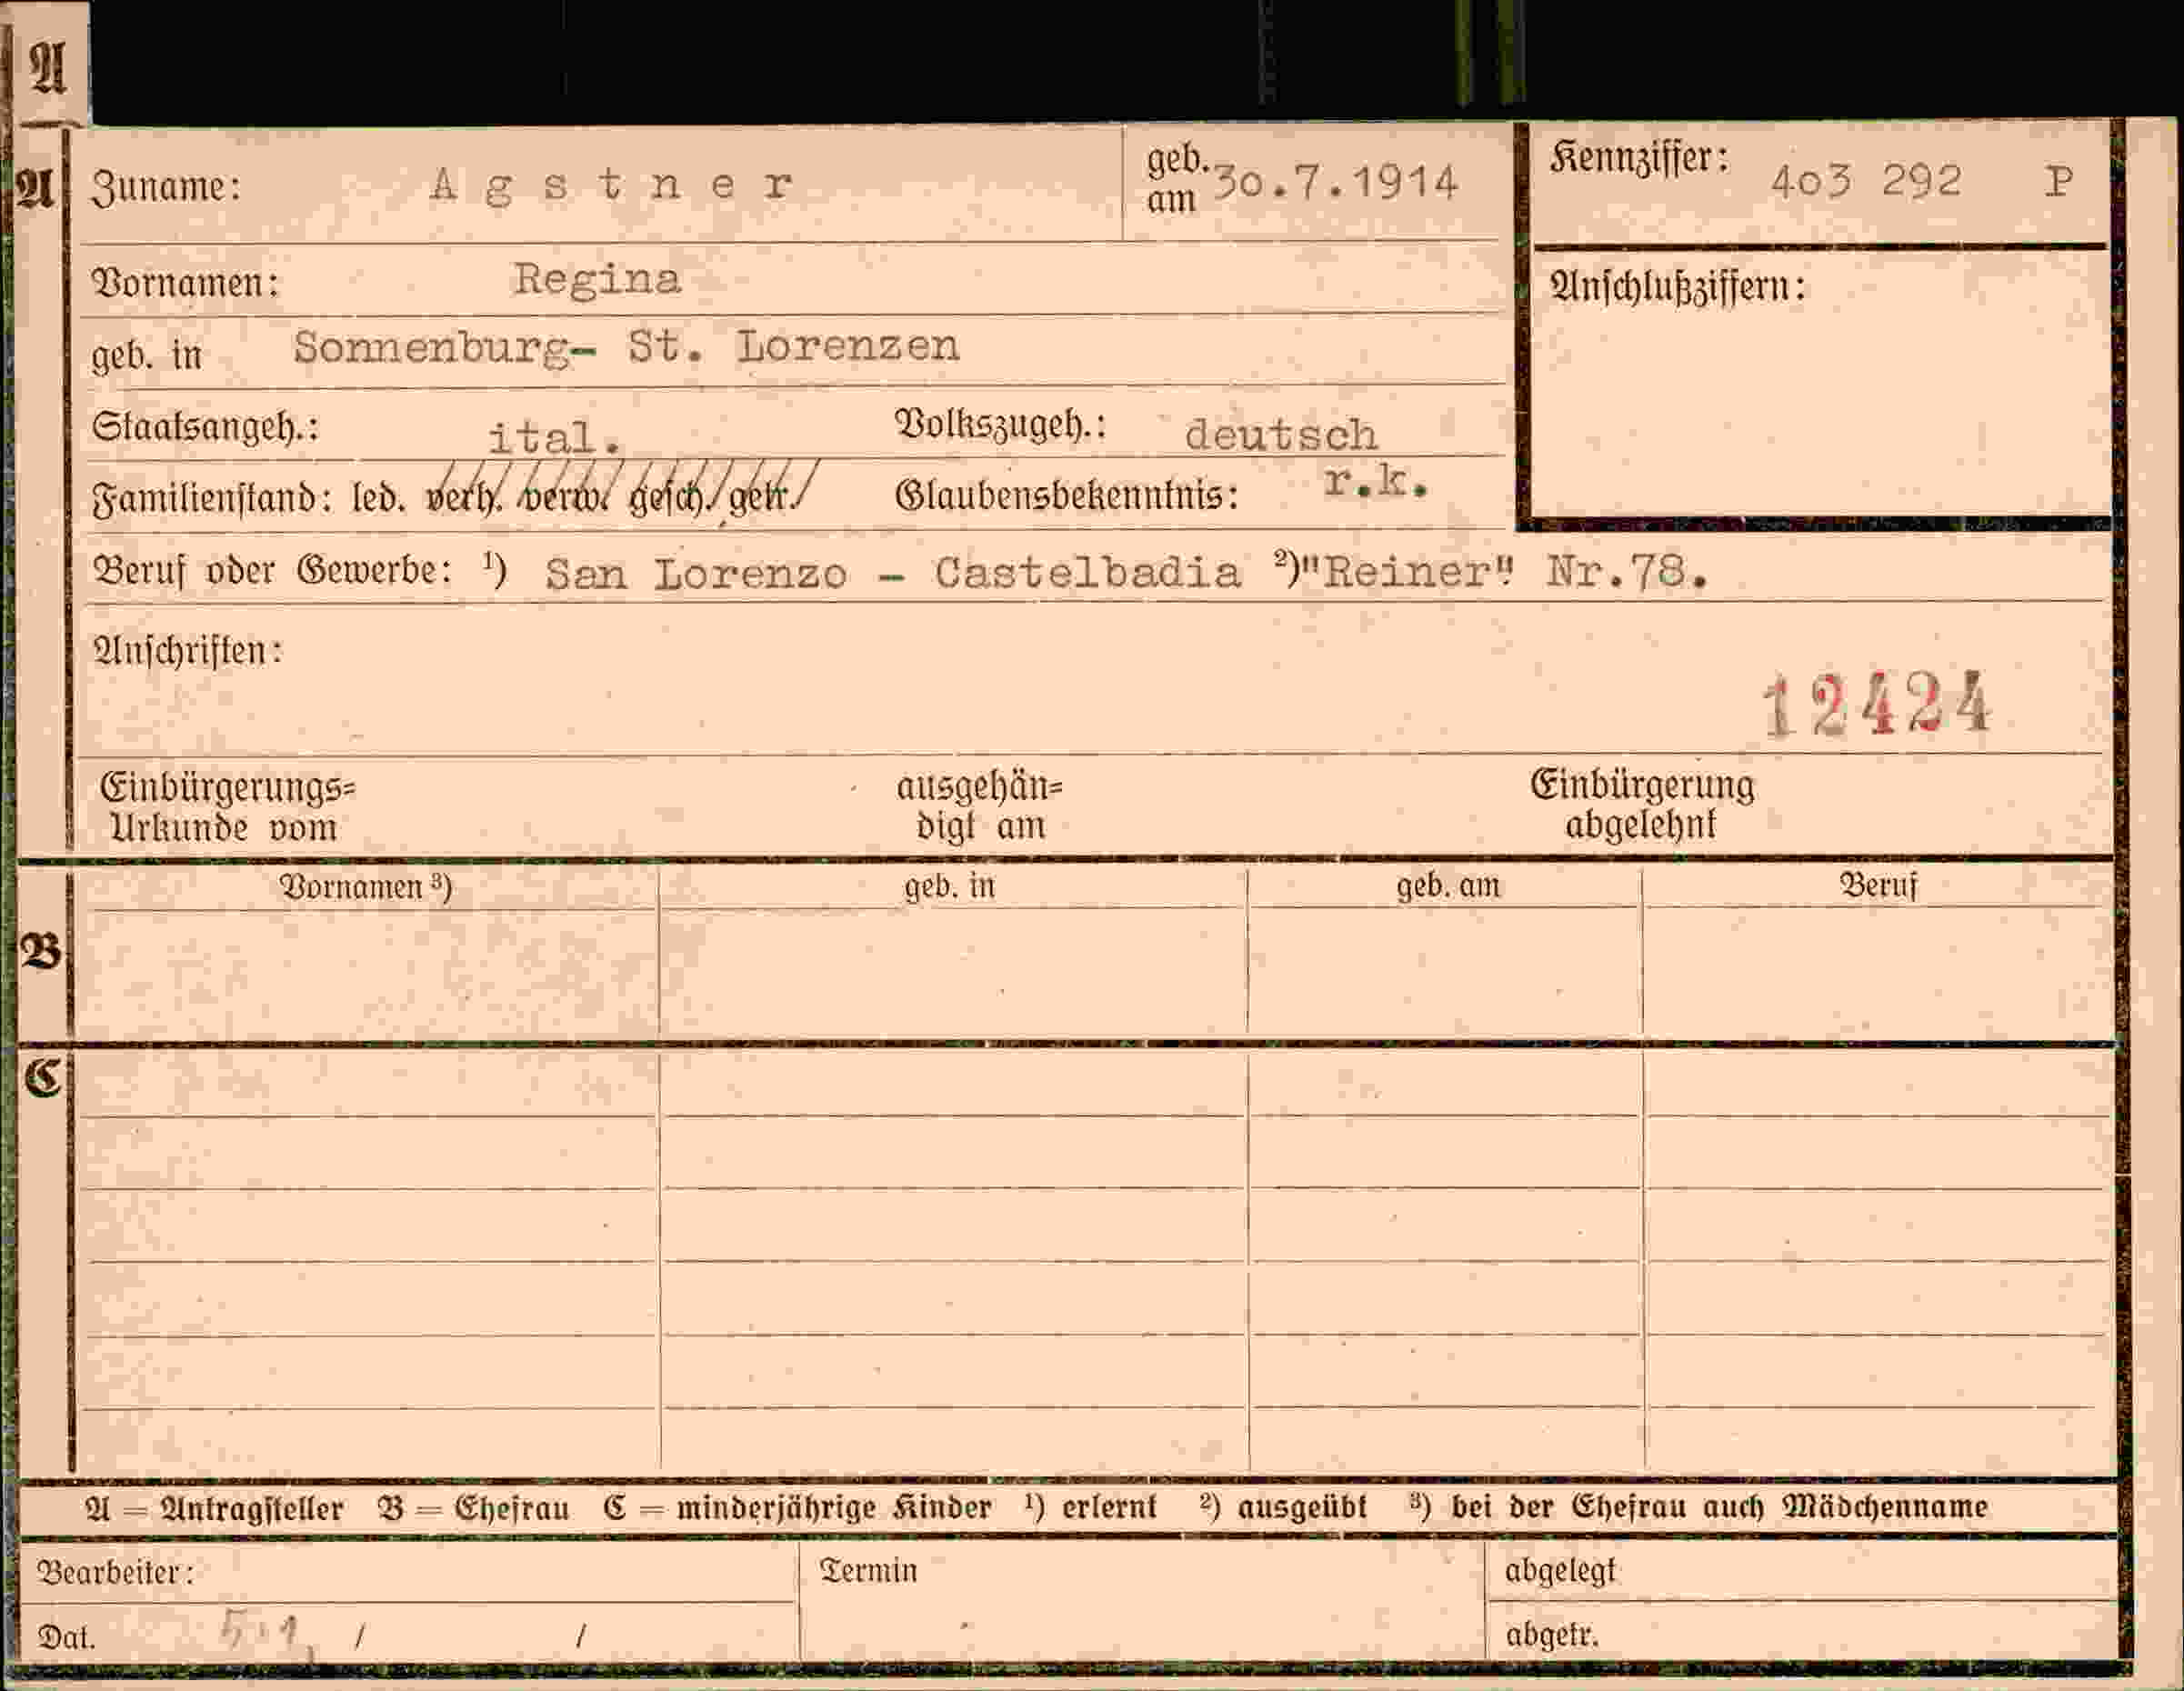 A
A Zuname: Agstner geb. am 30.7.1914 Kennziffer: 403 292 P
Vornamen: Regina Anschlußziffern:
geb. in Sonnenburg- St. Lorenzen
Staatsangeh.: ital. Volkszugeh.: deutsch
Familienstand: led. verh. verw. gesch. getr. Glaubensbekenntnis: r.k.
Beruf oder Gewerbe: ¹) San Lorenzo - Castelbadia ²) "Reiner" Nr.78.
Anschriften:
12424
Einbürgerungs= ausgehän= Einbürgerung
Urkunde vom digt am abgelehnt
Vornamen ³) geb. in geb. am Beruf
B
C
A = Antragsteller B = Ehefrau C = minderjährige Kinder ¹) erlernt ²) ausgeübt ³) bei der Ehefrau auch Mädchenname
Bearbeiter: Termin abgelegt
Dat. 5.1. / / abgetr.